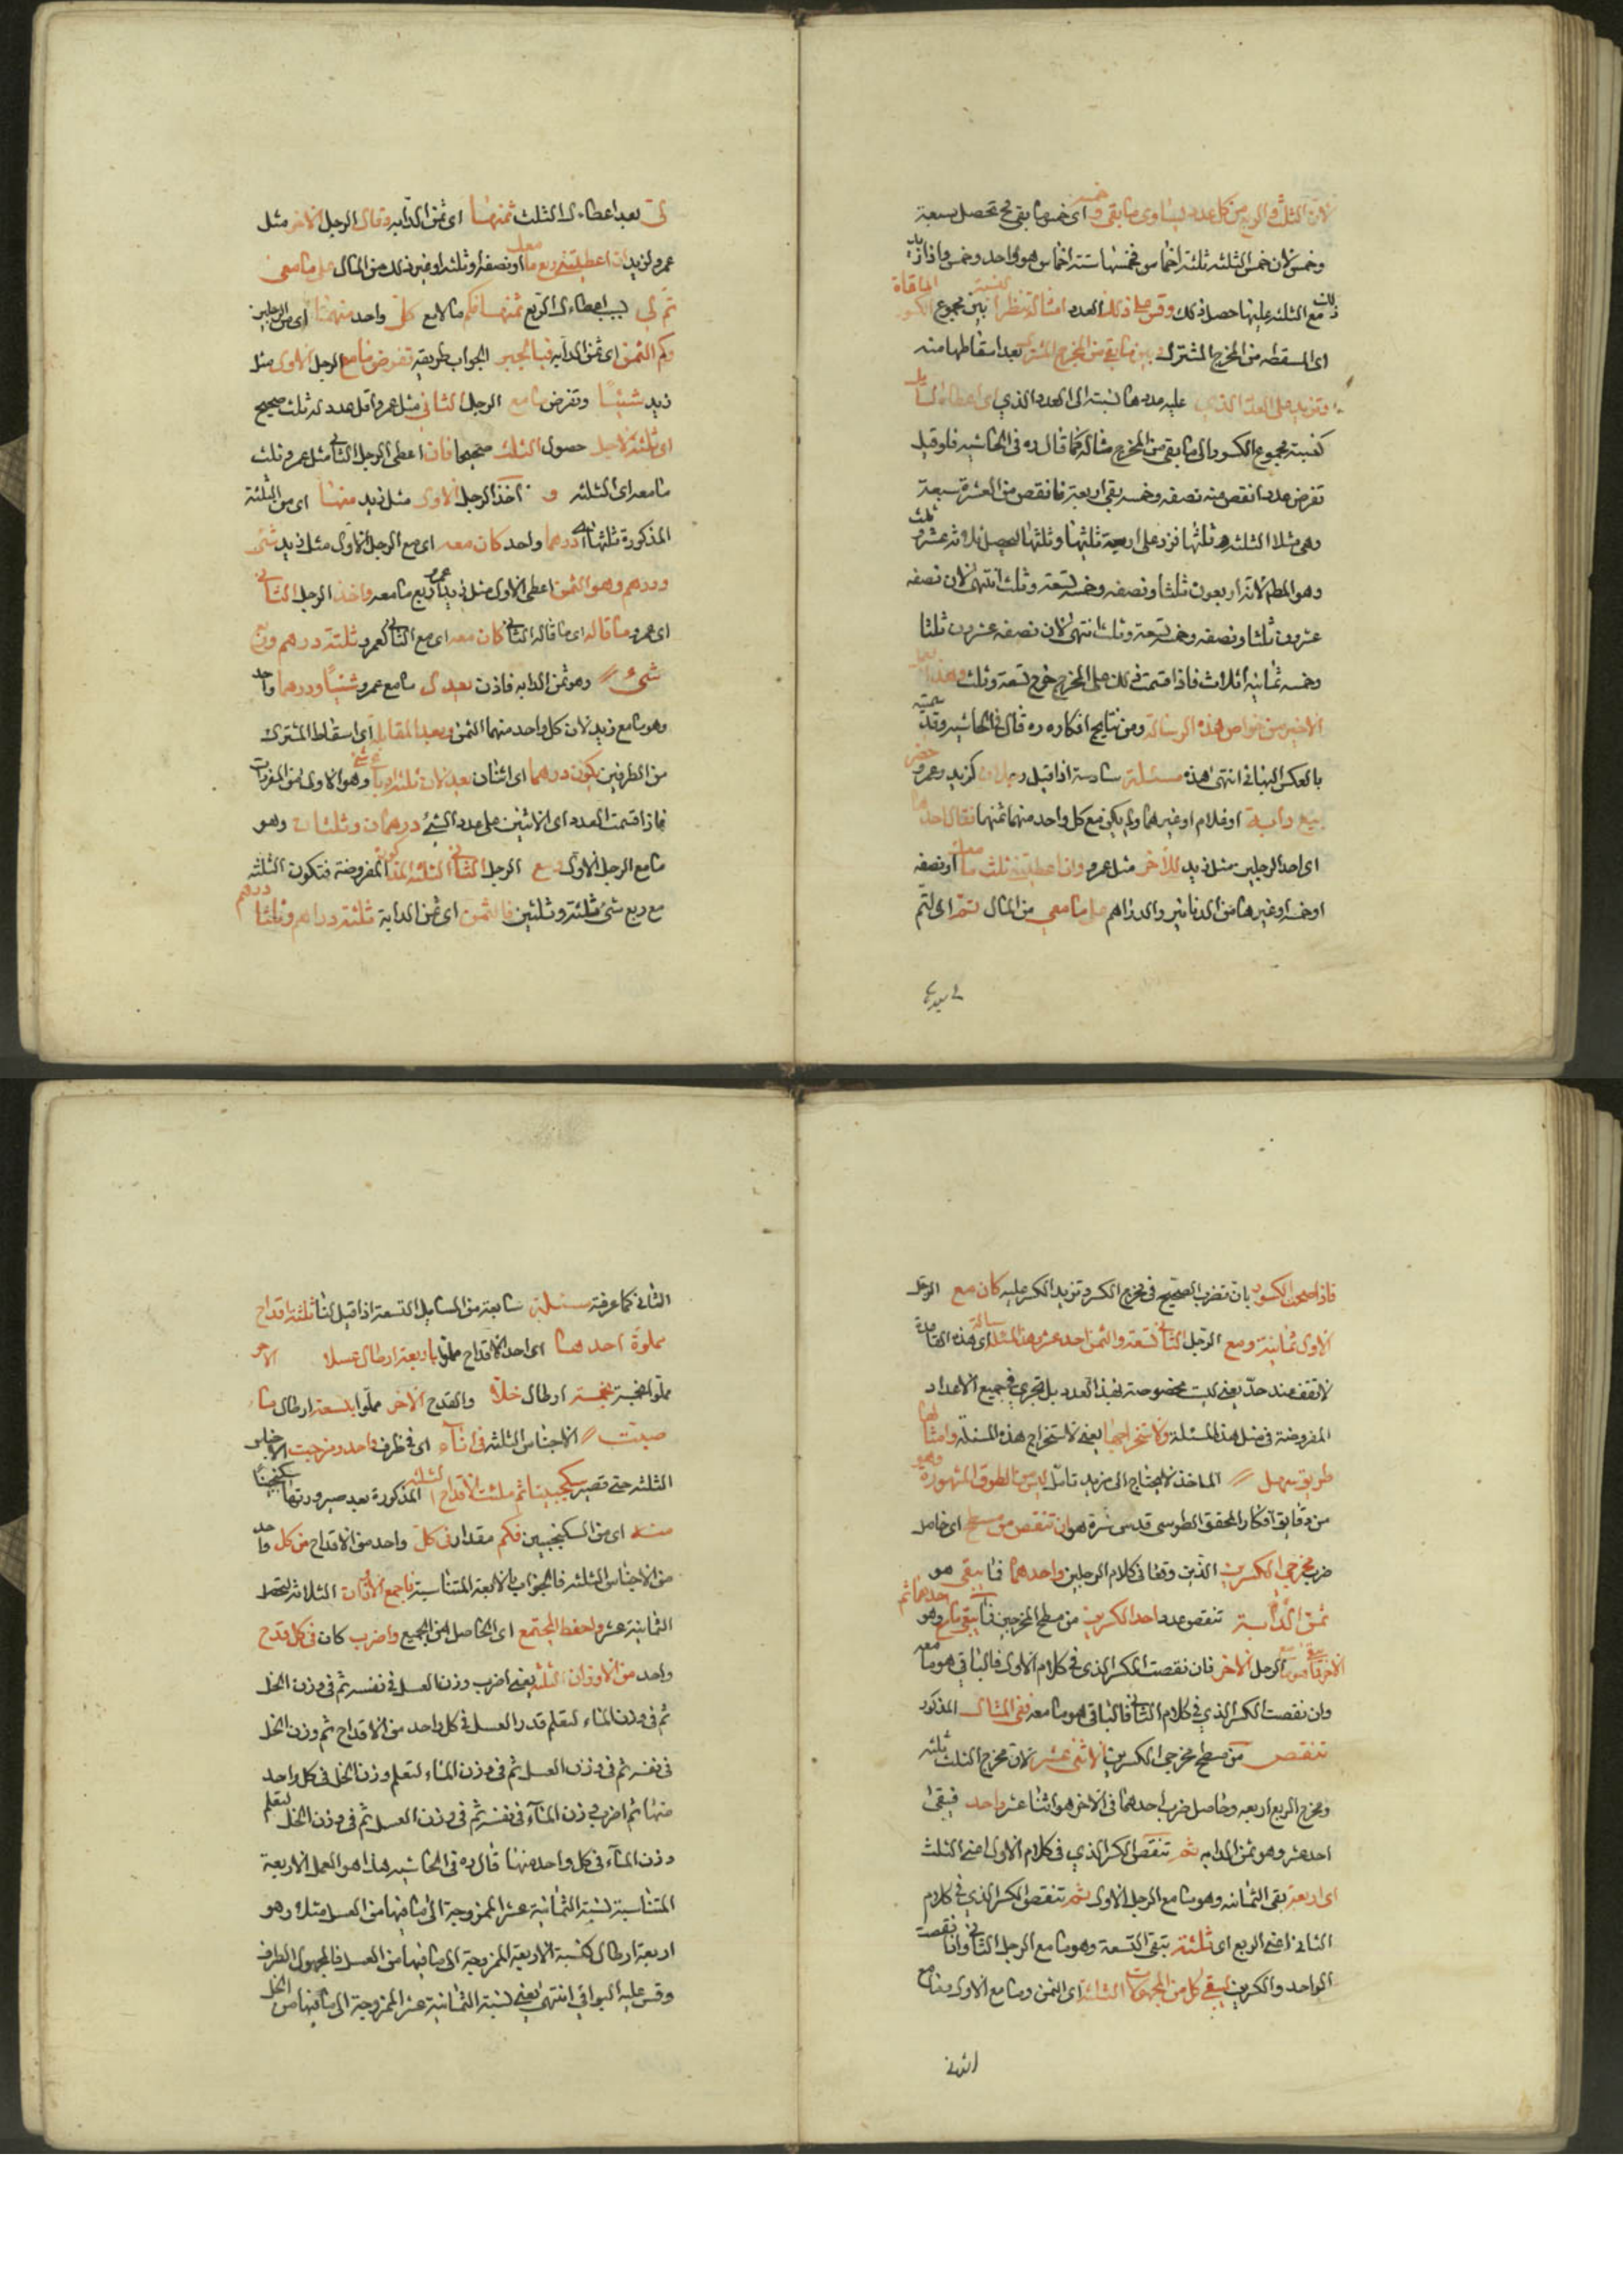 لان الثلث والربع من كل عدد يساوى ما بقى وخمسه اى خمس ما بقى فح تحصل سبعة
وخمس لان خمس الثلثه ثلثة اخماس فخمسها ستة اخماس هو واحد وخمس واذا زيد
ذلك مع الثلثه عليها حصل ذلك وقس على ذلك العدد امثاله تنظر النسبة بين مجموع الكسور الملقاة
اى المسقطه من المخرج المشترك بين ما بقى من المخرج المشترك بعد اسقاطها منه
وتزيد على العدد الذى عليه مدد ها نسبته الى العدد الذى اعطاه السائل
كنسبة مجموع الكسور الى ما بقى من المخرج مثاله كما قال ره فى الحاشيه فلو قيل
تفرض عددا نقص منه نصفه وخمسه بقى اربعة فانقص من العشرة سبعة
وهى مثلا الثلثه وثلثها فزد على اربعة مثليها وثلثها ليحصل ثلاثة عشر وثلث
وهو المط لانه اربعون ثلثا ونصفه وخمسه تسعة وثلث انتهى لان نصفه
عشرون ثلثا ونصفه وخمسه تسعة وثلث انتهى لان نصفه عشرون ثلثا
وخمسه ثمانية اثلاث فاذا قسمت ذلك على المخرج خرج تسعة وثلث وهذا العمل
الاخير من خواص هذه الرسالة ومن نتايج افكاره ره قال فى الحاشيه وقد سميته
بالعكس البهائى انتهى هذه مسئلة سادسة اذا قيل رجلان كزيد وعمرو حضرا
بيع دابة او غلام او غيرهما ولم يكن مع كل واحد منهما ثمنها فقال احدهما
اى احد الرجلين مثل زيد للآخر مثل عمرو وان اعطيتنى ثلث ما معك او نصفه
او خمسه او غيرها من الدنانير والدراهم على ما معى من المال تم اى لتم
لى بعد
لى بعد اعطاءك الثلث ثمنها اى ثمن الدابه وقال الرجل الاخر مثل
عمرو لزيد ان اعطيتنى ربع ما معك او نصفه او ثلثه او غير ذلك من المال على ما معى
تم لى بسبب اعطاءك الربع ثمنها فكم مال مع كل واحد منهما اى من الرجلين
وكم الثمن اى ثمن الدابه فبالجبر الجواب طريقه تفرض ما مع الرجل الاول مثل
زيد شيئا وتفرض ما مع الرجل الثانى مثل عمرو اقل عدد له ثلث صحيح
اى ثلثة لاجل حصول الثلث صحيحا فان اعطى الرجل الثانى مثل عمرو ثلث
ما معه اى الثلثه و اخذ الرجل الاول مثل زيد منها اى من الثلثة
المذكورة ثلثها اى درهما واحد كان معه اى مع الرجل الاول مثل زيد شئ
ودرهم وهو الثمن اعطى الاول مثل زيد عمروا ربع ما معه واخذ الرجل الثانى
اى عمرو ما قاله اى ما قاله الثانى كان معه اى مع الثانى كعمرو ثلثة درهم وربع
شئ وهو ثمن الدابه فاذن يعدل ما مع عمرو شيئا ودرهما واحد
وهو ما مع زيد لان كل واحد منهما الثمن وبعد المقابلة اى اسقاط المشترك
من الطرفين يكون درهما اى اثنان يعدلان ثلثة ارباع شئ وهو الاولى من المفردات
فاذا قسمت العدد اى الاثنين على عدد الشئ درهمان وثلثان وهو
ما مع الرجل الاول مع الرجل الثانى الثلثه المذكورة المفروضة فتكون الثلثه
مع ربع شئ ثلثة وثلثين فالثمن اى ثمن الدابة ثلثة دراهم وثلثا درهم
فاذا صححت الكسور بان تضرب الصحيح فى مخرج الكسر وتزيد الكسر عليه كان مع الرجل
الاول ثمانية ومع الرجل الثانى تسعة والثمن احد عشر وهذه المسئلة اى هذه القاعدة
لا تقف عند حد يعنى ليست مخصوصة بهذا العدد بل تجرى فى جميع الاعداد
المفروضة فى مثل هذه المسئلة ولاستخراجها يعنى لاستخراج هذه المسئلة وامثالها
طريق سهل الماخذ لا يحتاج الى مزيد تامل ليس من الطرق المشهورة وهو
من دقايق افكار المحقق الطوسى قدس سره هو ان تنقص من مسطح اى حاصل
ضرب مخرجى الكسرين الذين وقعا فى كلام الرجلين واحدهما فما يبقى هو
ثمن الدابة تنقص عدد احد الكسرين من مسطح المخرجين فما يبقى مع احدهما ثم وهو
الاخر فما بقى هو مع الرجل الاخر فان نقصت الكسر الذى فى كلام الاول فالباقى هو ما معه
وان نقصت الكسر الذى فى كلام الثانى فالباقى هو ما معه ففى المثال المذكور
تنقص من مسطح مخرجى الكسرين الاثنى عشر لان مخرج الثلث ثلثه
ومخرج الربع اربعه وحاصل ضرب احدهما فى الاخر هو اثنا عشر واحد فيبقى
احد عشر وهو ثمن الدابه ثم تنقص الكسر الذى فى كلام الاول اعنى الثلث
اى اربعة بقى الثمانيه وهو ما مع الرجل الاول ثم تنقص الكسر الذى فى كلام
الثانى اعنى الربع اى ثلثة تبقى التسعة وهو ما مع الرجل الثانى واذا نقصت
الواحد والكسرين ليبقى كل من المجهولات الثلثة اى الثمن وما مع الاول وما مع
الثانى
الثانى كما عرفته مسئلة سابعة من المسايل التسعة اذا قيل لنا ثلثة اقداح
مملوة احدهما اى احد الاقداح مملوا باربعة ارطال عسلا الاخر
مملوا بخمسة ارطال خلا والقدح الاخر مملوا بتسعة ارطال ماء
صبت الاجناس الثلثه فى اناء اى فى ظرف واحد ومزجت الاخلاط
الثلثه حتى تصير سكنجبينا ثم ملئت الاقداح الثلثه المذكورة بعد صيرورتها سكنجبينا
منه اى من السكنجبين فكم مقدار فى كل واحد من الاقداح من كل واحد
من الاجناس الثلثه فالجواب بالاربعة المتناسبة فاجمع الاوزان الثلاثه لتحصل
الثمانية عشر واحفظ المجتمع اى الحاصل من الجميع واضرب كان فى كل قدح
واحد من الاوزان الثلثه يعنى اضرب وزن العسل فى نفسه ثم فى وزن الخل
ثم فى وزن الماء لتعلم قدر العسل فى كل واحد من الاقداح ثم وزن الخل
فى نفسه ثم فى وزن العسل ثم فى وزن الماء لتعلم وزن الخل فى كل واحد
منها ثم اضرب وزن الماء فى نفسه ثم فى وزن العسل ثم فى وزن الخل لتعلم
وزن الماء فى كل واحد منها قال ره فى الحاشيه هذا هو العمل الاربعة
المتناسبة لنسبة الثمانية عشر الممزوجة الى ما فيها من العسل مثلا وهو
اربعة ارطال كنسبة الاربعة الممزوجة الى ما فيها من العسل فالمجهول الطرف
وقس عليه البواقى انتهى يعنى نسبة الثمانية عشر الممزوجة الى ما فيها من الخل